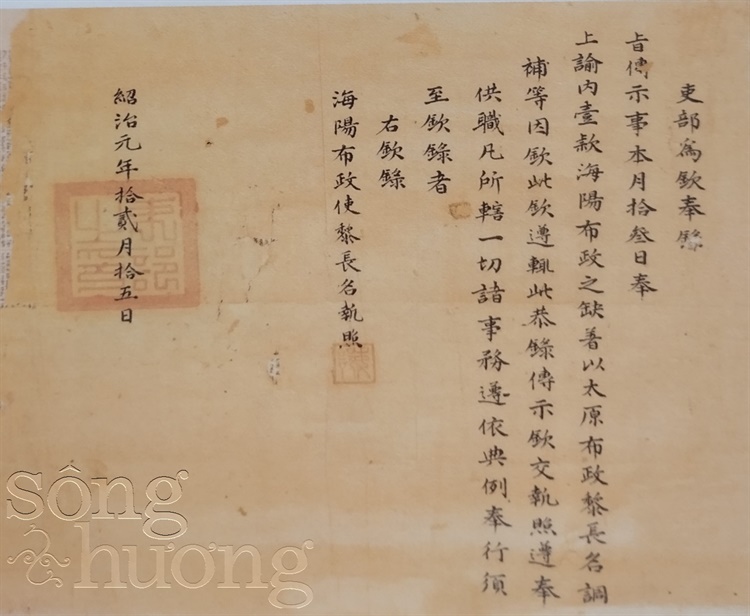 吏部為欽奉錄
旨傳示事本月拾叁日奉
上諭內壹款海陽布政之缺着以太原布政黎長名調
補等因欽此欽遵輒此恭錄傳示欽交執照遵奉
供職凡所轄一切諸事務遵依典例奉行須
至欽錄者
右欽錄
海陽布政使黎長名執照
紹治元年拾貳月拾五日
sông
hương